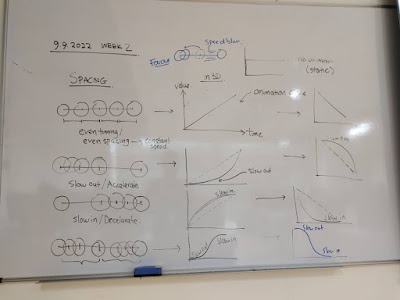 9.9.2022 WEEK 2
Favour
Speed blur
no animation
(static)
SPACING
value
n 3D
animation curve
time
even timing/
even spacing → constant
speed
slow out
slow out/Accelerate
slow in
slow in
slow in/Decelerate
slow out
slow in
slow out
slow in